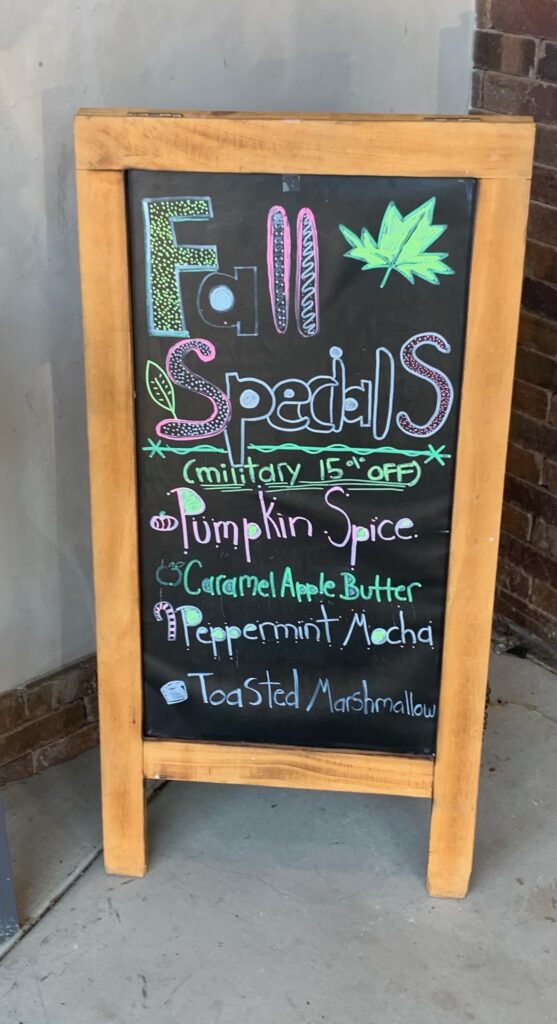 Fall
Specials
(military 15% OFF)
Pumpkin Spice
Caramel Apple Butter
Peppermint Mocha
Toasted Marshmallow